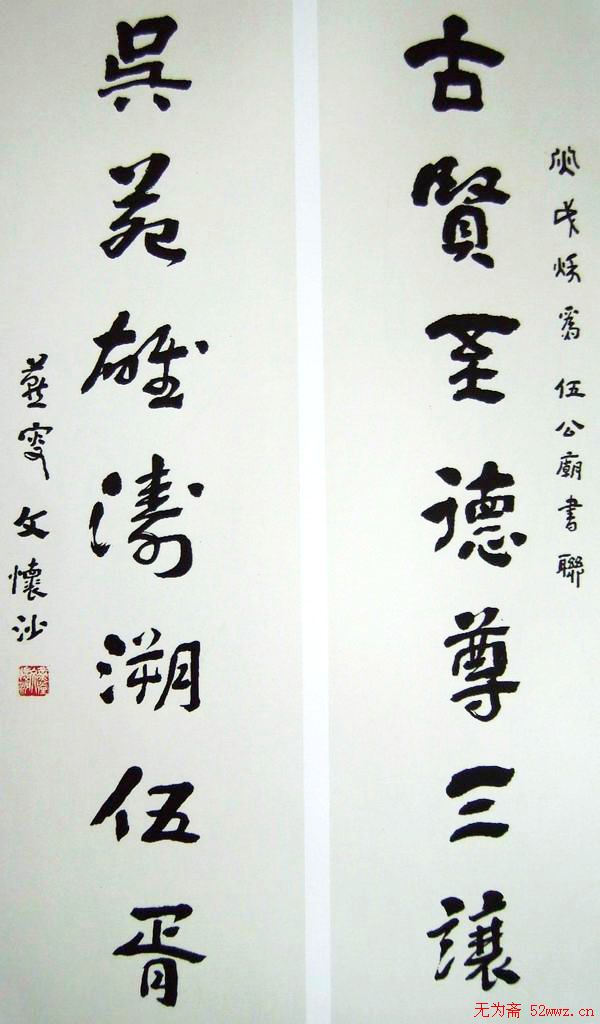 古賢至德尊三讓
戌秋為伍公廟書聯
吳苑雄濤溯伍胥
燕叟文懷沙
无为斋 52wwz.cn